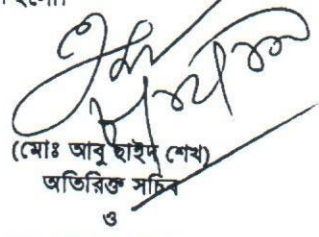 হলো।
(মোঃ আবু ছাইদ শেখ)
অতিরিক্ত সচিব
ও